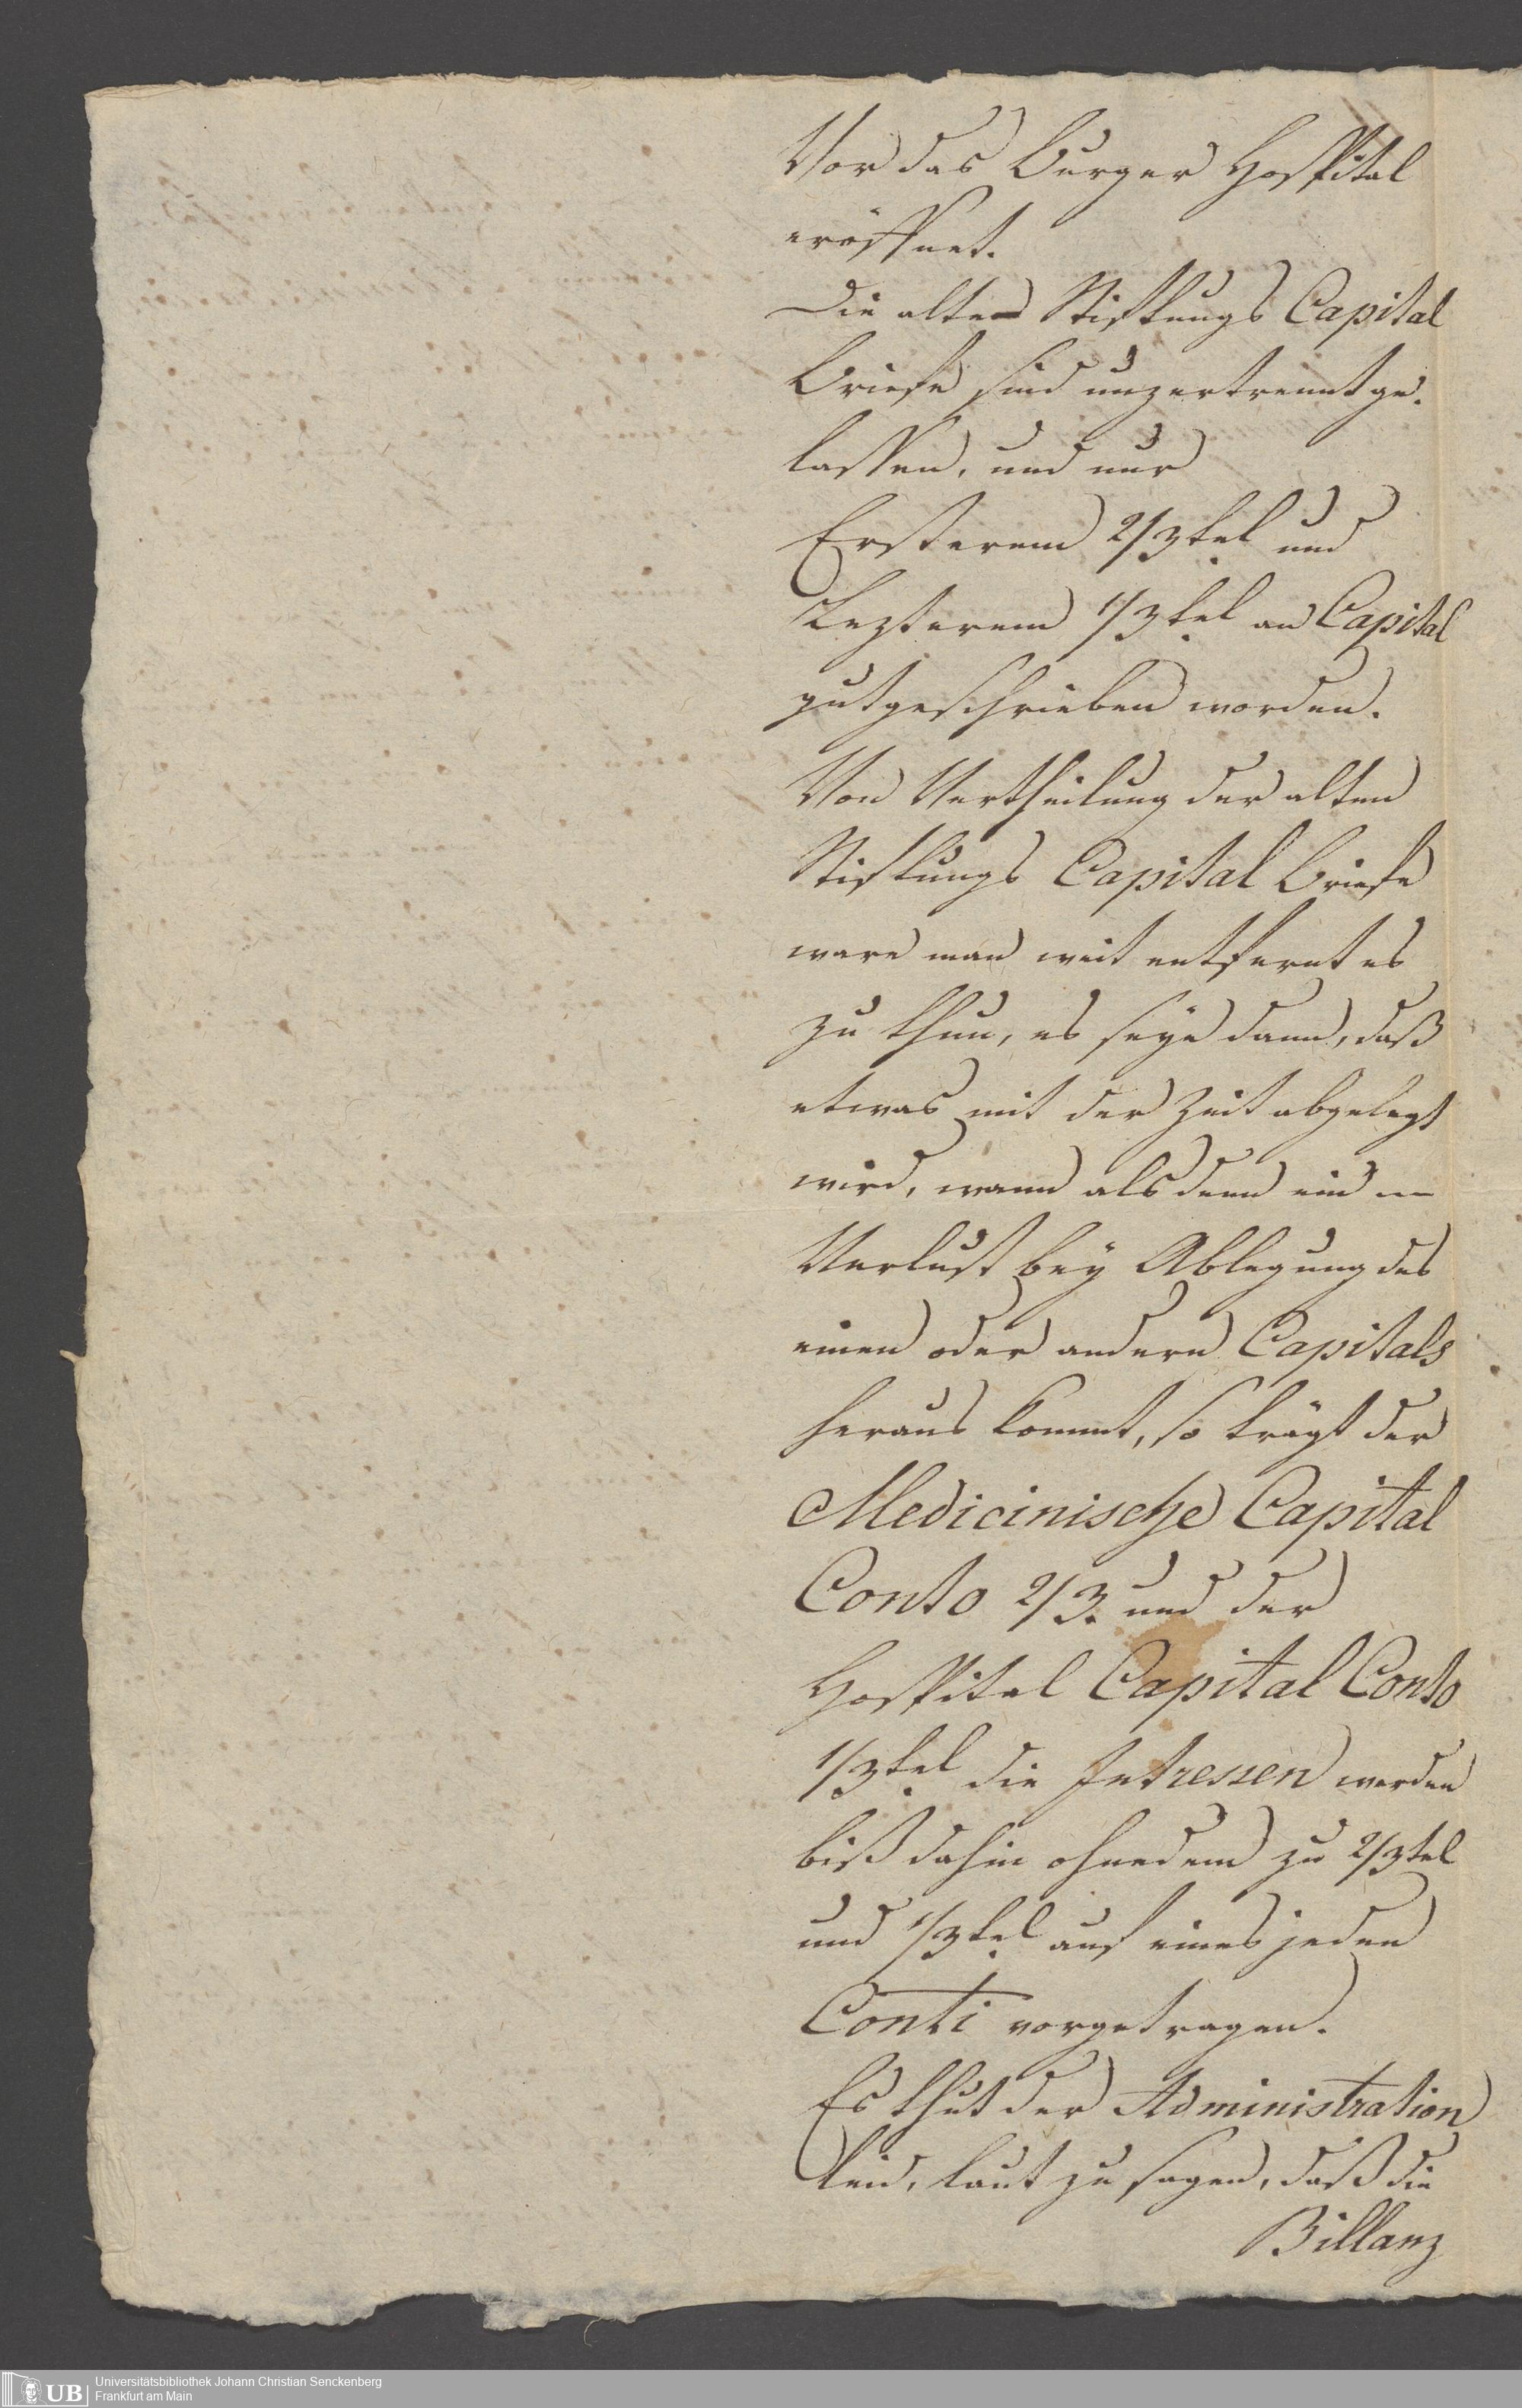 Vor das Burger Hospital
eröffnet.
Die alten Stiftungs Capital
Briefe sind unzertrennt ge-
lassen, und nur
Ersterem 2/3tel und
Lezterem 1/3tel an Capital
gutgeschrieben worden.
Von Vertheilung der alten
Stiftungs Capital Briefe
ware man weit entfernt es
zu thun, es seye dann, daß
etwas mit der Zeit abgelegt
wird, wann alsdenn ein
Verlust bey Ablegung des
einen oder andern Capitals
heraus kommt, so trägt der
Medicinische Capital
Conto 2/3. und der
Hospital Capital Conto
1/3tel die Intressen werden
biß dahin ohnedem zu 2/3tel
und 1/3tel auf eines jeden
Conti vorgetragen.
Es thut der Administration
leid, laut zu sagen, daß die
Billanz
UB
Universitätsbibliothek Johann Christian Senckenberg
Frankfurt am Main